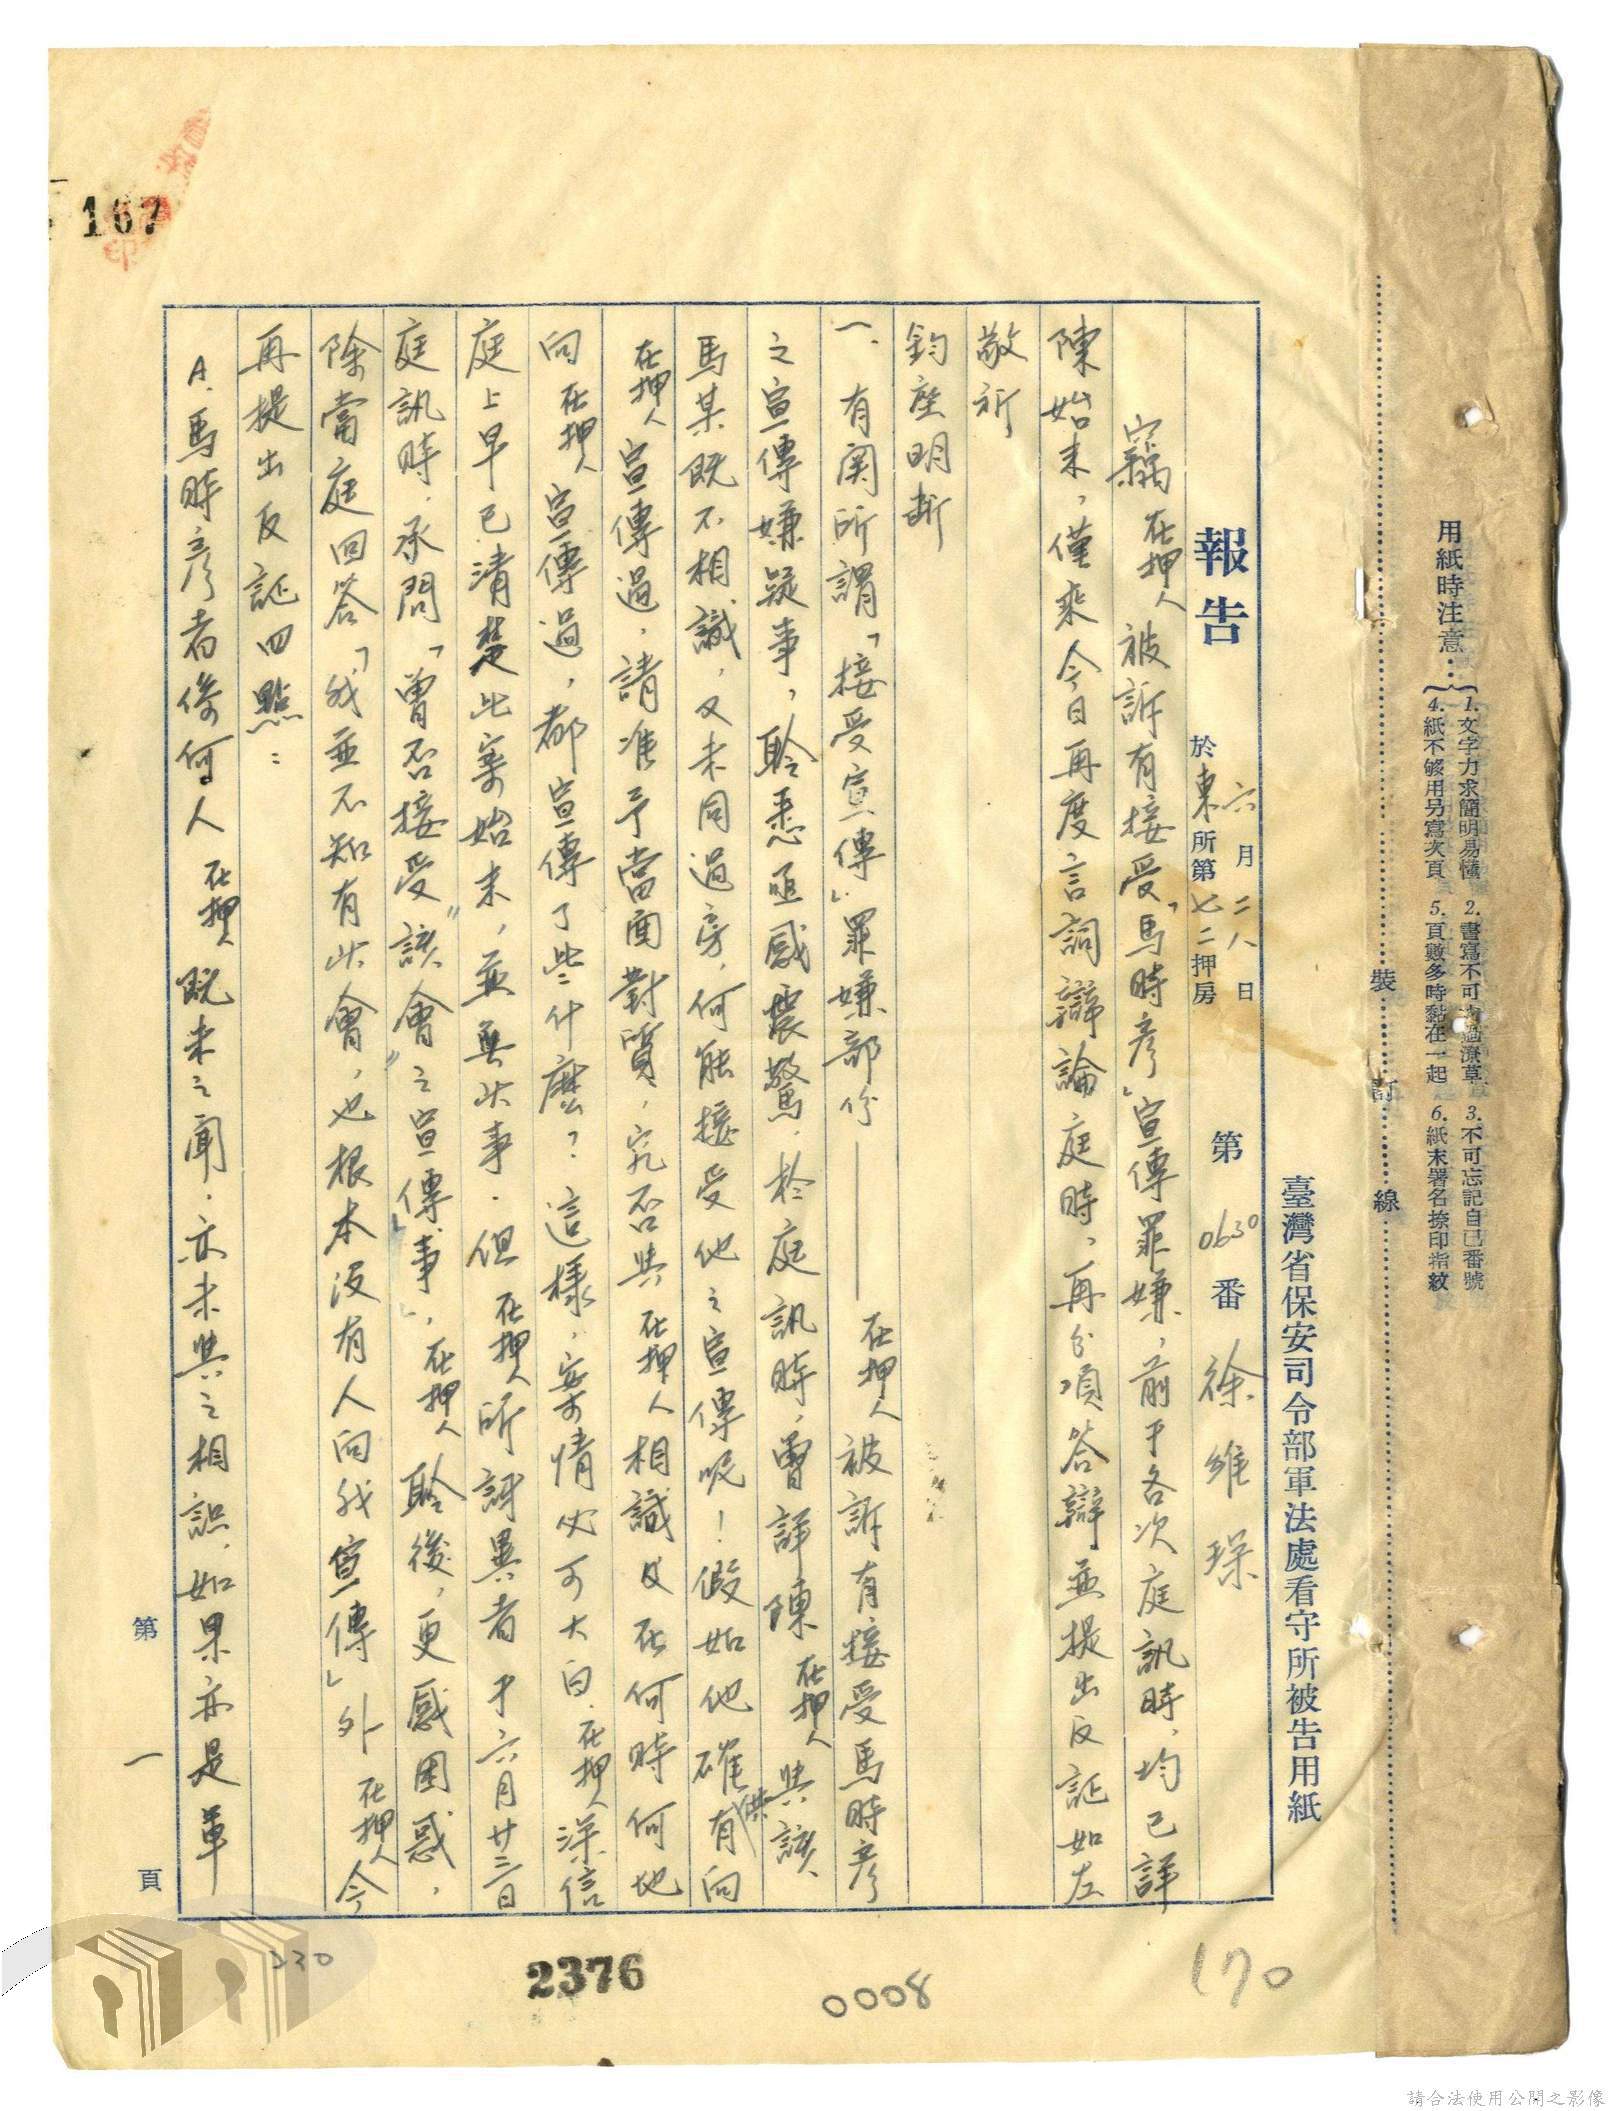 用紙時注意：
1. 文字力求簡明易懂 2. 書寫不可太過潦草 3. 不可忘記自己番號
4. 紙不够用另寫次頁 5. 頁數多時黏在一起 6. 紙末署名捺印指紋
裝 訂 線
臺灣省保安司令部軍法處看守所被告用紙
報告
六月二八日
於東所第七二押房
第0630番 徐維琛
竊在押人被訴有接受「馬時彥」宣傳罪嫌，前于各次庭訊時，均已詳
陳始末，僅乘今日再度言詞辯論庭時，再分項答辯並提出反証如左
敬祈
鈞座明斷
一、有関所謂「接受宣傳」罪嫌部份——在押人被訴有接受馬時彥
之宣傳嫌疑事，聆悉極感震驚，於庭訊時，曾詳陳在押人與該
馬某既不相識，又未同過房，何能接受他之宣傳呢！假如他確有供向
在押人宣傳過，請准予當面對質，究否與在押人相識及在何時何地
向在押人宣傳過，都宣傳了些什麼？這樣，案情必可大白，在押人深信
庭上早已清楚此案始末，並無此事．但在押人所訝異者于六月廿三日
庭訊時，承問「曾否接受〞該會〞之宣傳事」，在押人聆後，更感困惑，
除當庭回答「我並不知有此會，也根本沒有人向我宣傳」外，在押人今
再提出反証四點：
A. 馬時彥者係何人在押人既未之聞，亦未與之相識，如果亦是軍
第一頁
167
印
230
2376
0008
170
請合法使用公開之影像